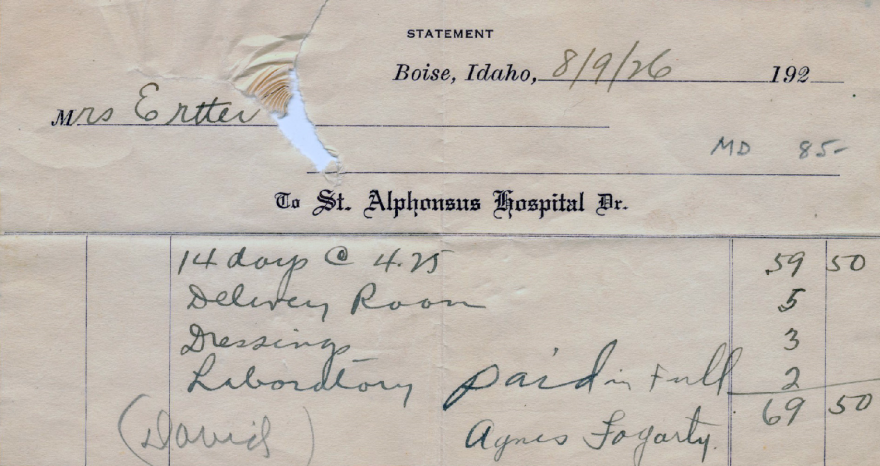 STATEMENT
Boise, Idaho, 8/9/26 192
Mrs Ertter
MD 85-
To St. Alphonsus Hospital Dr.
14 days @ 4.25 59 50
Delivery Room 5
Dressings 3
Laboratory paid in Full 2
69 50
(David) Agnes Fogarty.